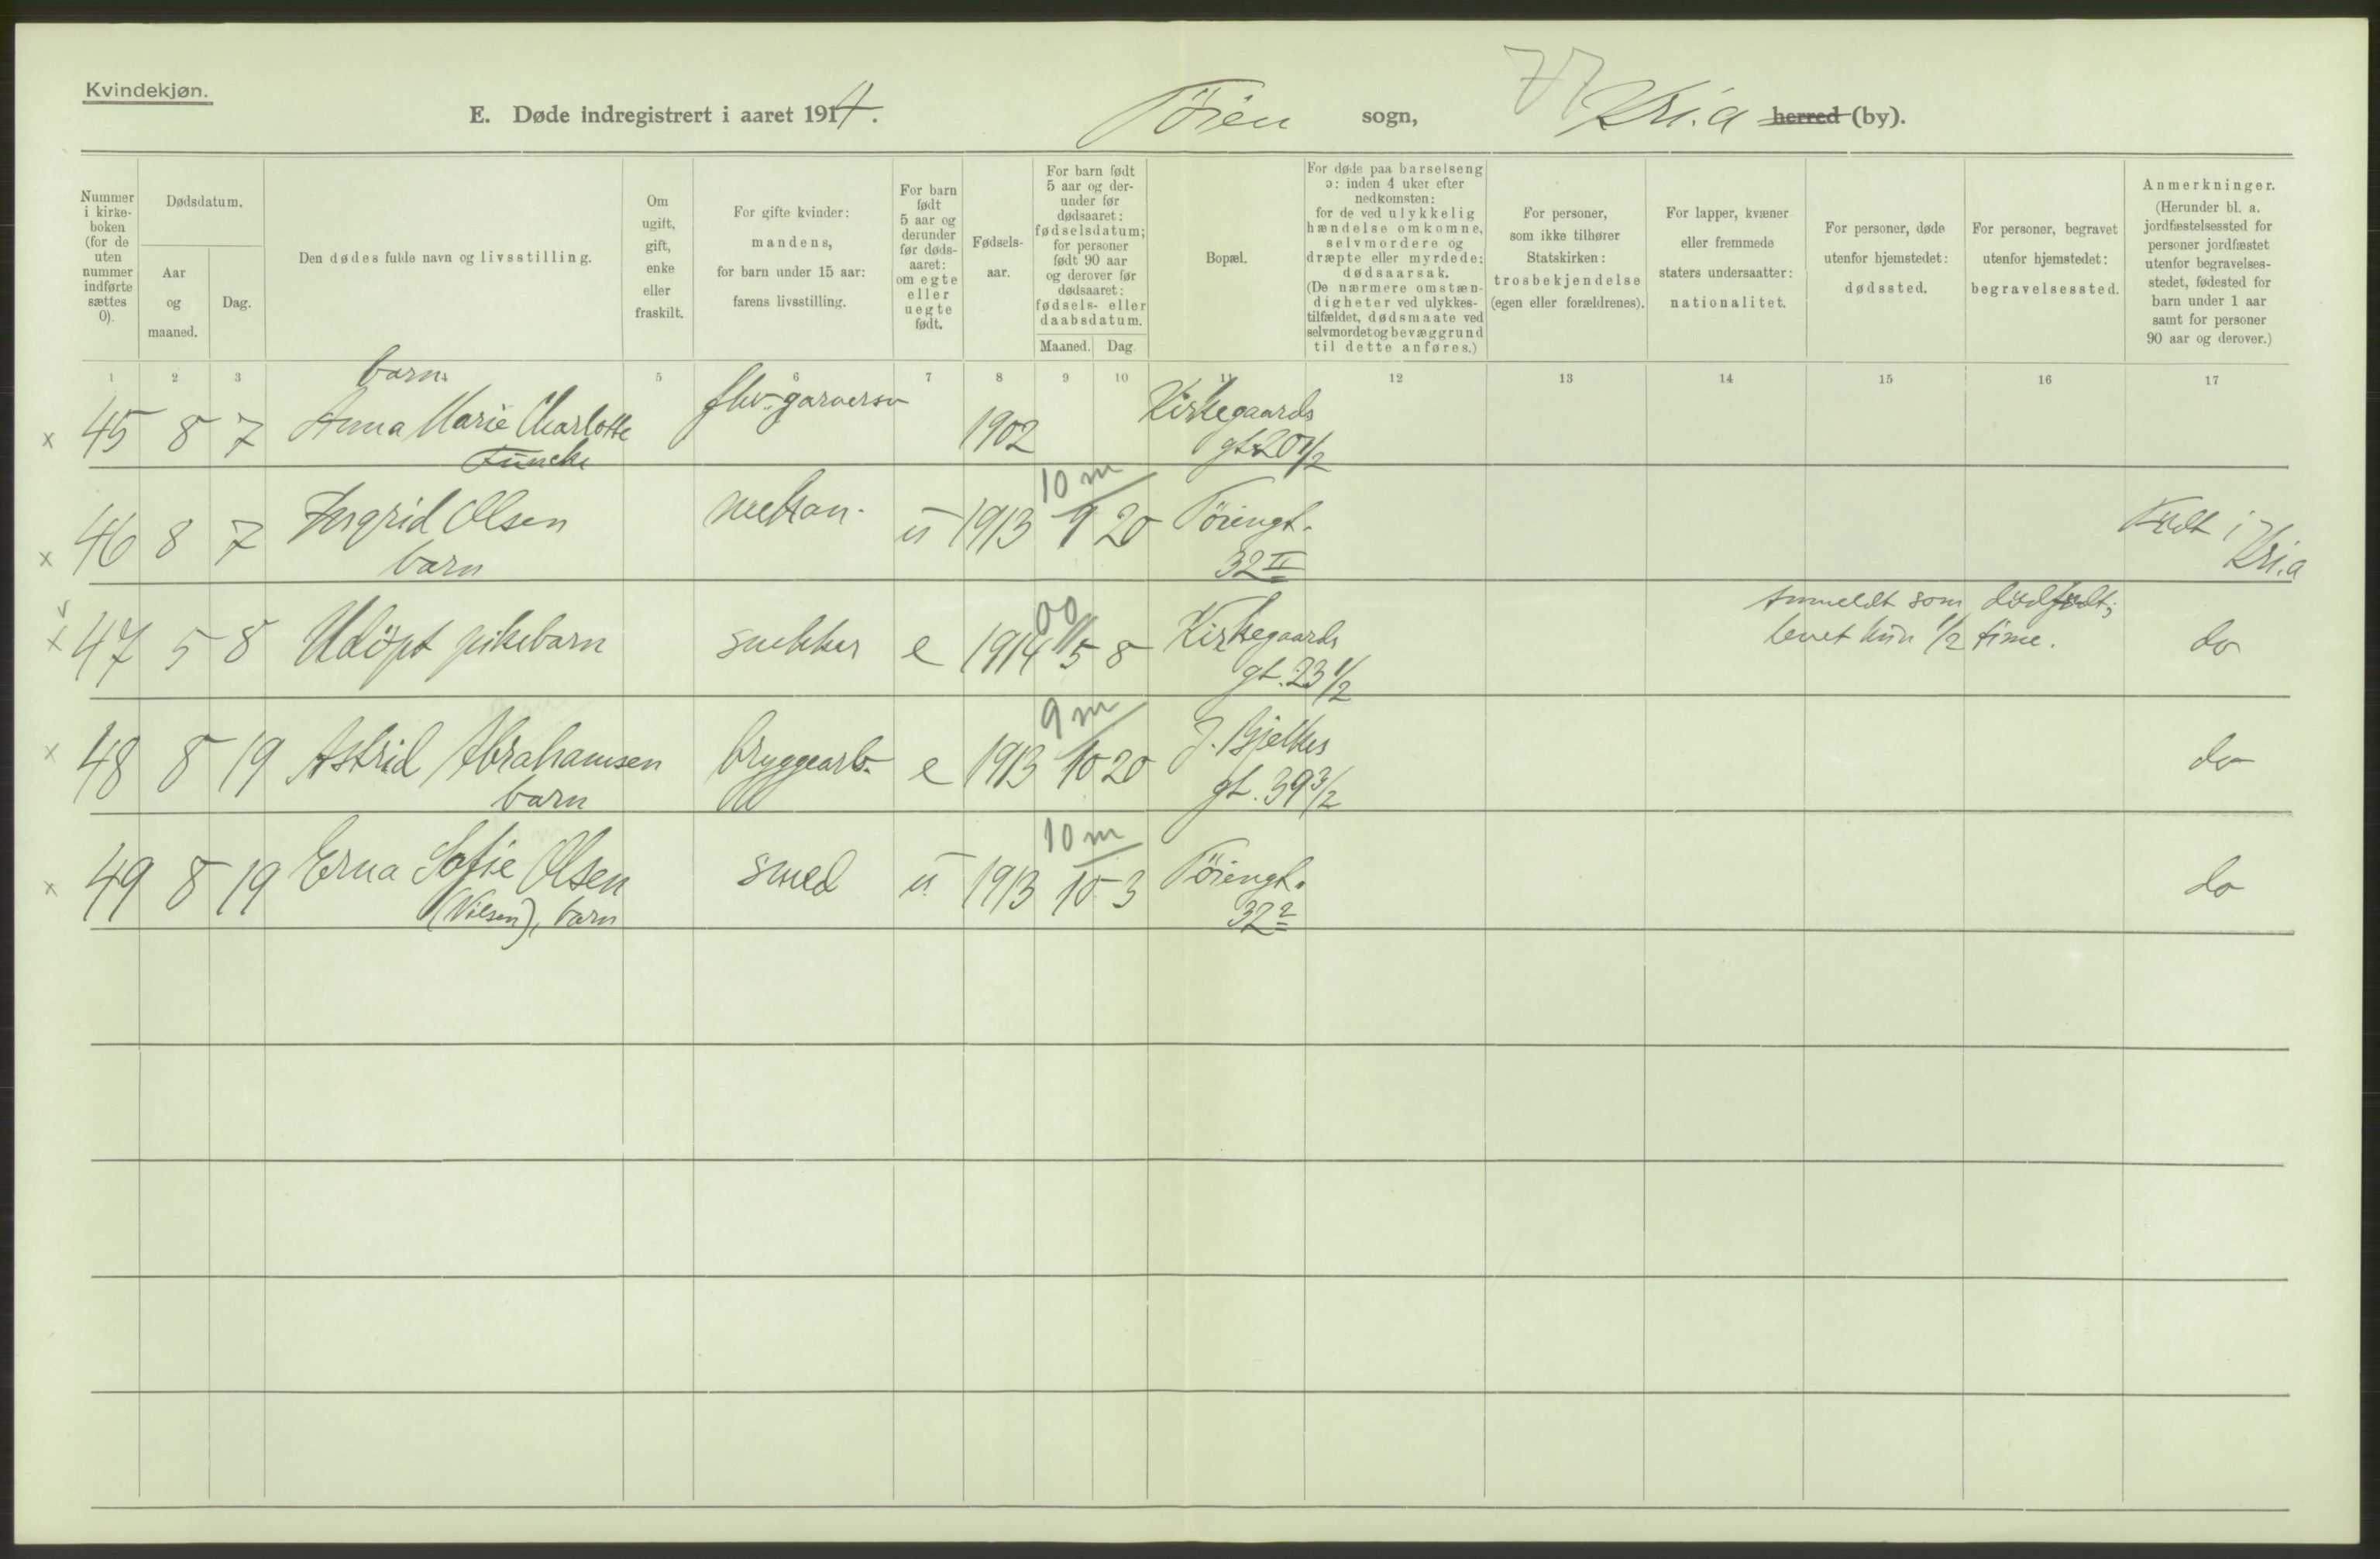 Kvindekjøn.
E. Døde indregistrert i aaret 1914.
Töien sogn,
77
Kri.a herred (by).
Nummer
i kirke-
boken
(for de
uten
nummer
indførte
sættes
0).
Dødsdatum.
Aar
og
maaned.
Dag.
Den dødes fulde navn og livsstilling.
Om
ugift,
gift,
enke
eller
fraskilt.
For gifte kvinder:
mandens,
for barn under 15 aar:
farens livsstilling.
For barn
født
5 aar og
derunder
før døds-
aaret:
om egte
eller
uegte
født.
Fødsels-
aar.
For barn født
5 aar og der-
under før
dødsaaret:
fødselsdatum;
for personer
født 90 aar
og derover før
dødsaaret:
fødsels- eller
daabsdatum.
Maaned. Dag
Bopæl.
For døde paa barselseng
ɔ: inden 4 uker efter
nedkomsten:
for de ved ulykkelig
hændelse omkomne,
selvmordere og
dræpte eller myrdede:
dødsaarsak.
(De nærmere omstæn-
digheter ved ulykkes-
tilfældet, dødsmaate ved
selvmordet og bevæggrund
til dette anføres.)
For personer,
som ikke tilhører
Statskirken:
trosbekjendelse
(egen eller forældrenes).
For lapper, kvæner
eller fremmede
staters undersaatter:
nationalitet.
For personer, døde
utenfor hjemstedet:
dødssted.
For personer, begravet
utenfor hjemstedet:
begravelsessted.
Anmerkninger.
(Herunder bl. a.
jordfæstelsessted for
personer jordfæstet
utenfor begravelses-
stedet, fødested for
barn under 1 aar
samt for personer
90 aar og derover.)
1 2 3 5 6 7 8 9 10 11 12 13 14 15 16 17
barn
x 45 8 7 Anna Marie Charlotte
Funcke
fhv. garversv
1902
Kirkegaards
gt. 20 1/2
x 46 8 7 Ingrid Olsen
barn
mekan. u 1913 9 20
10 m
Töiengt.
32 II
Født i
Kri.a
x 47 5 8 Udöpt pikebarn snekker e 1914 5 8
00
Kirkegaards
gt. 23 1/2
Anmeldt som dødfødt;
levet kun 1/2 time.
do
x 48 8 19 Astrid Abrahamsen
barn
bryggearb. e 1913 10 20
9 m
J. Bjelkes
gt. 39 3/2
do
x 49 8 19 Erna Sofie Olsen
(Nilsen), barn
smed u. 1913 10 3
10 m
Töiengt.
32 2
do